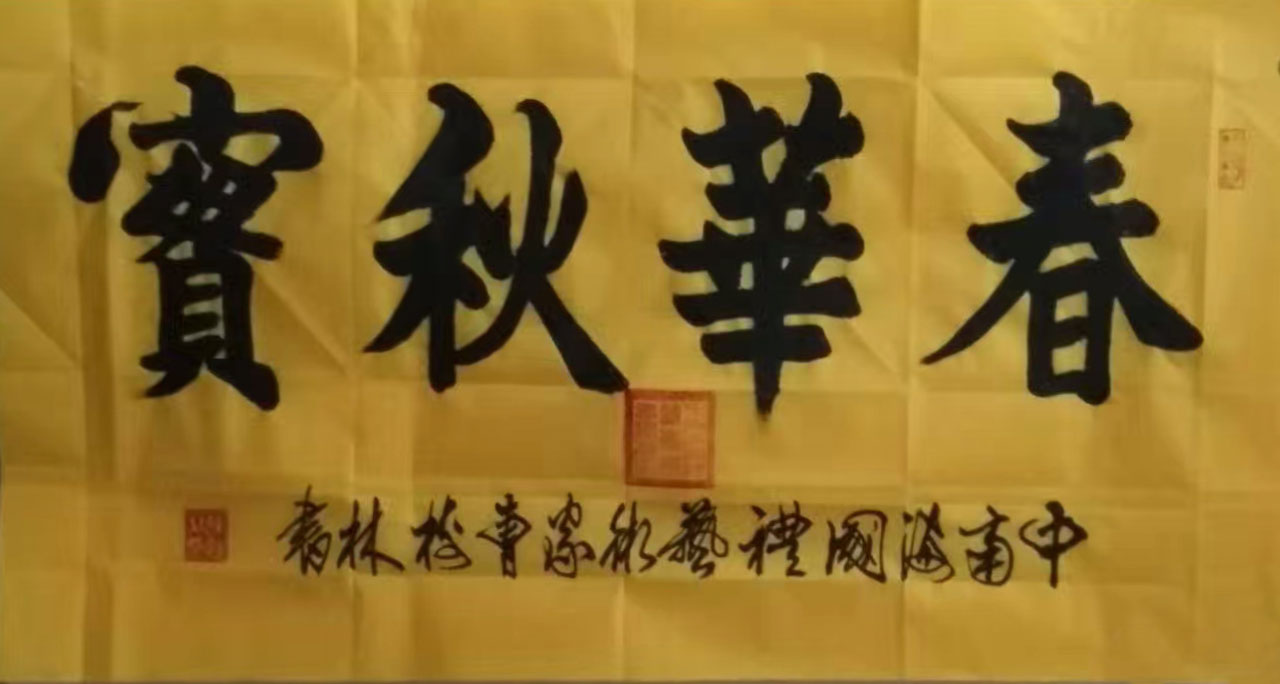 春華秋實
中南海國禮藝術家曹樹林書